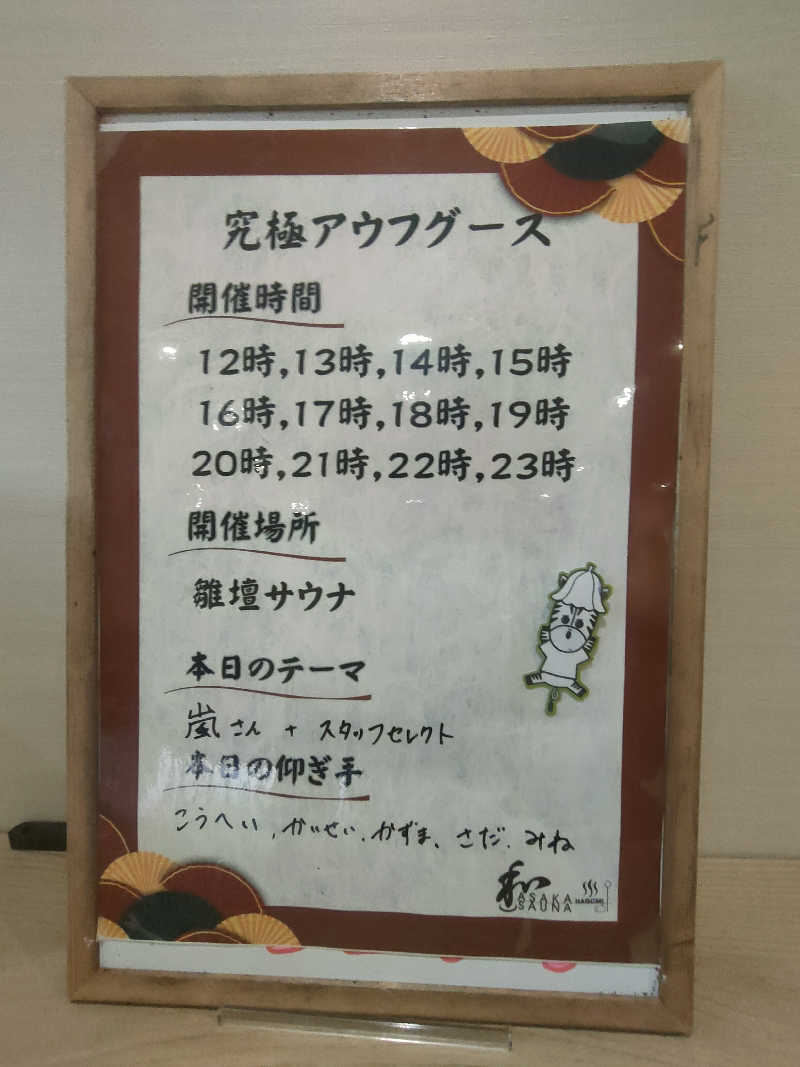 究極アウフグース
開催時間
12時,13時,14時,15時
16時,17時,18時,19時
20時,21時,22時,23時
開催場所
雛壇サウナ
本日のテーマ
嵐さん + スタッフセレクト
本日の仰ぎ手
こうへい, かいせい, かずま、さだ、みね
和
ASAKA
SAUNA
NAGOMI